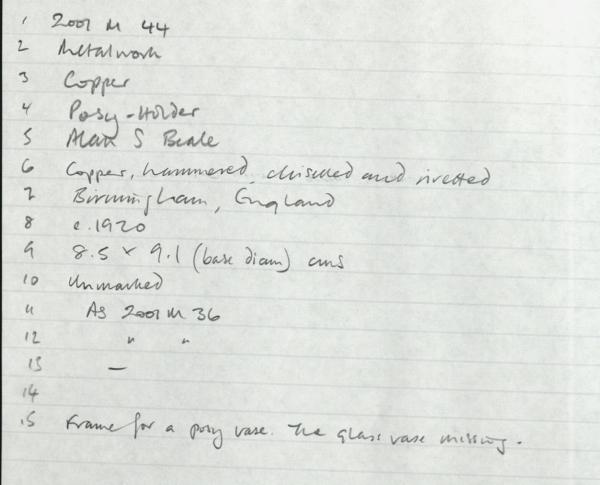 1 2001 M 44
2 Metalwork
3 Copper
4 Posy-Holder
5 Alan S Beale
6 Copper, hammered, chiselled and rivetted
7 Birmingham, England
8 c.1920
9 8.5 x 9.1 (base diam) cms
10 Unmarked
11 As 2001 M 36
12 " "
13 —
14
15 Frame for a posy vase. The glass vase missing.